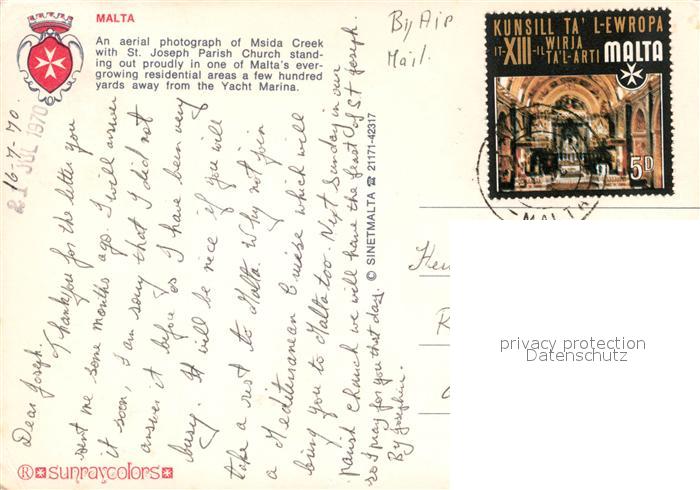 MALTA
An aerial photograph of Msida Creek
with St. Joseph Parish Church stand-
ing out proudly in one of Malta's ever-
growing residential areas a few hundred
yards away from the Yacht Marina.
By Air
Mail.
KUNSILL TA' L-EWROPA
IT-XIII-IL WIRJA
TA'L-ARTI
MALTA
5D
MALTA
16-7-70.
21 JUL 1970
Dear Joseph.
Thank you for the letter you
sent me some months ago. I will answer
it soon, I am sorry that I did not
answer it before as I have been very
busy. It will be nice if you will
take a rest to Malta. Why not join
a Mediterranean Cruise which will
bring you to Malta too. Next Sunday in our
parish church we will have the feast of St Joseph.
so I pray for you that day.
By Josephin.
© SINETMALTA ☎ 21171-42317
privacy protection
Datenschutz
® sunraycolors